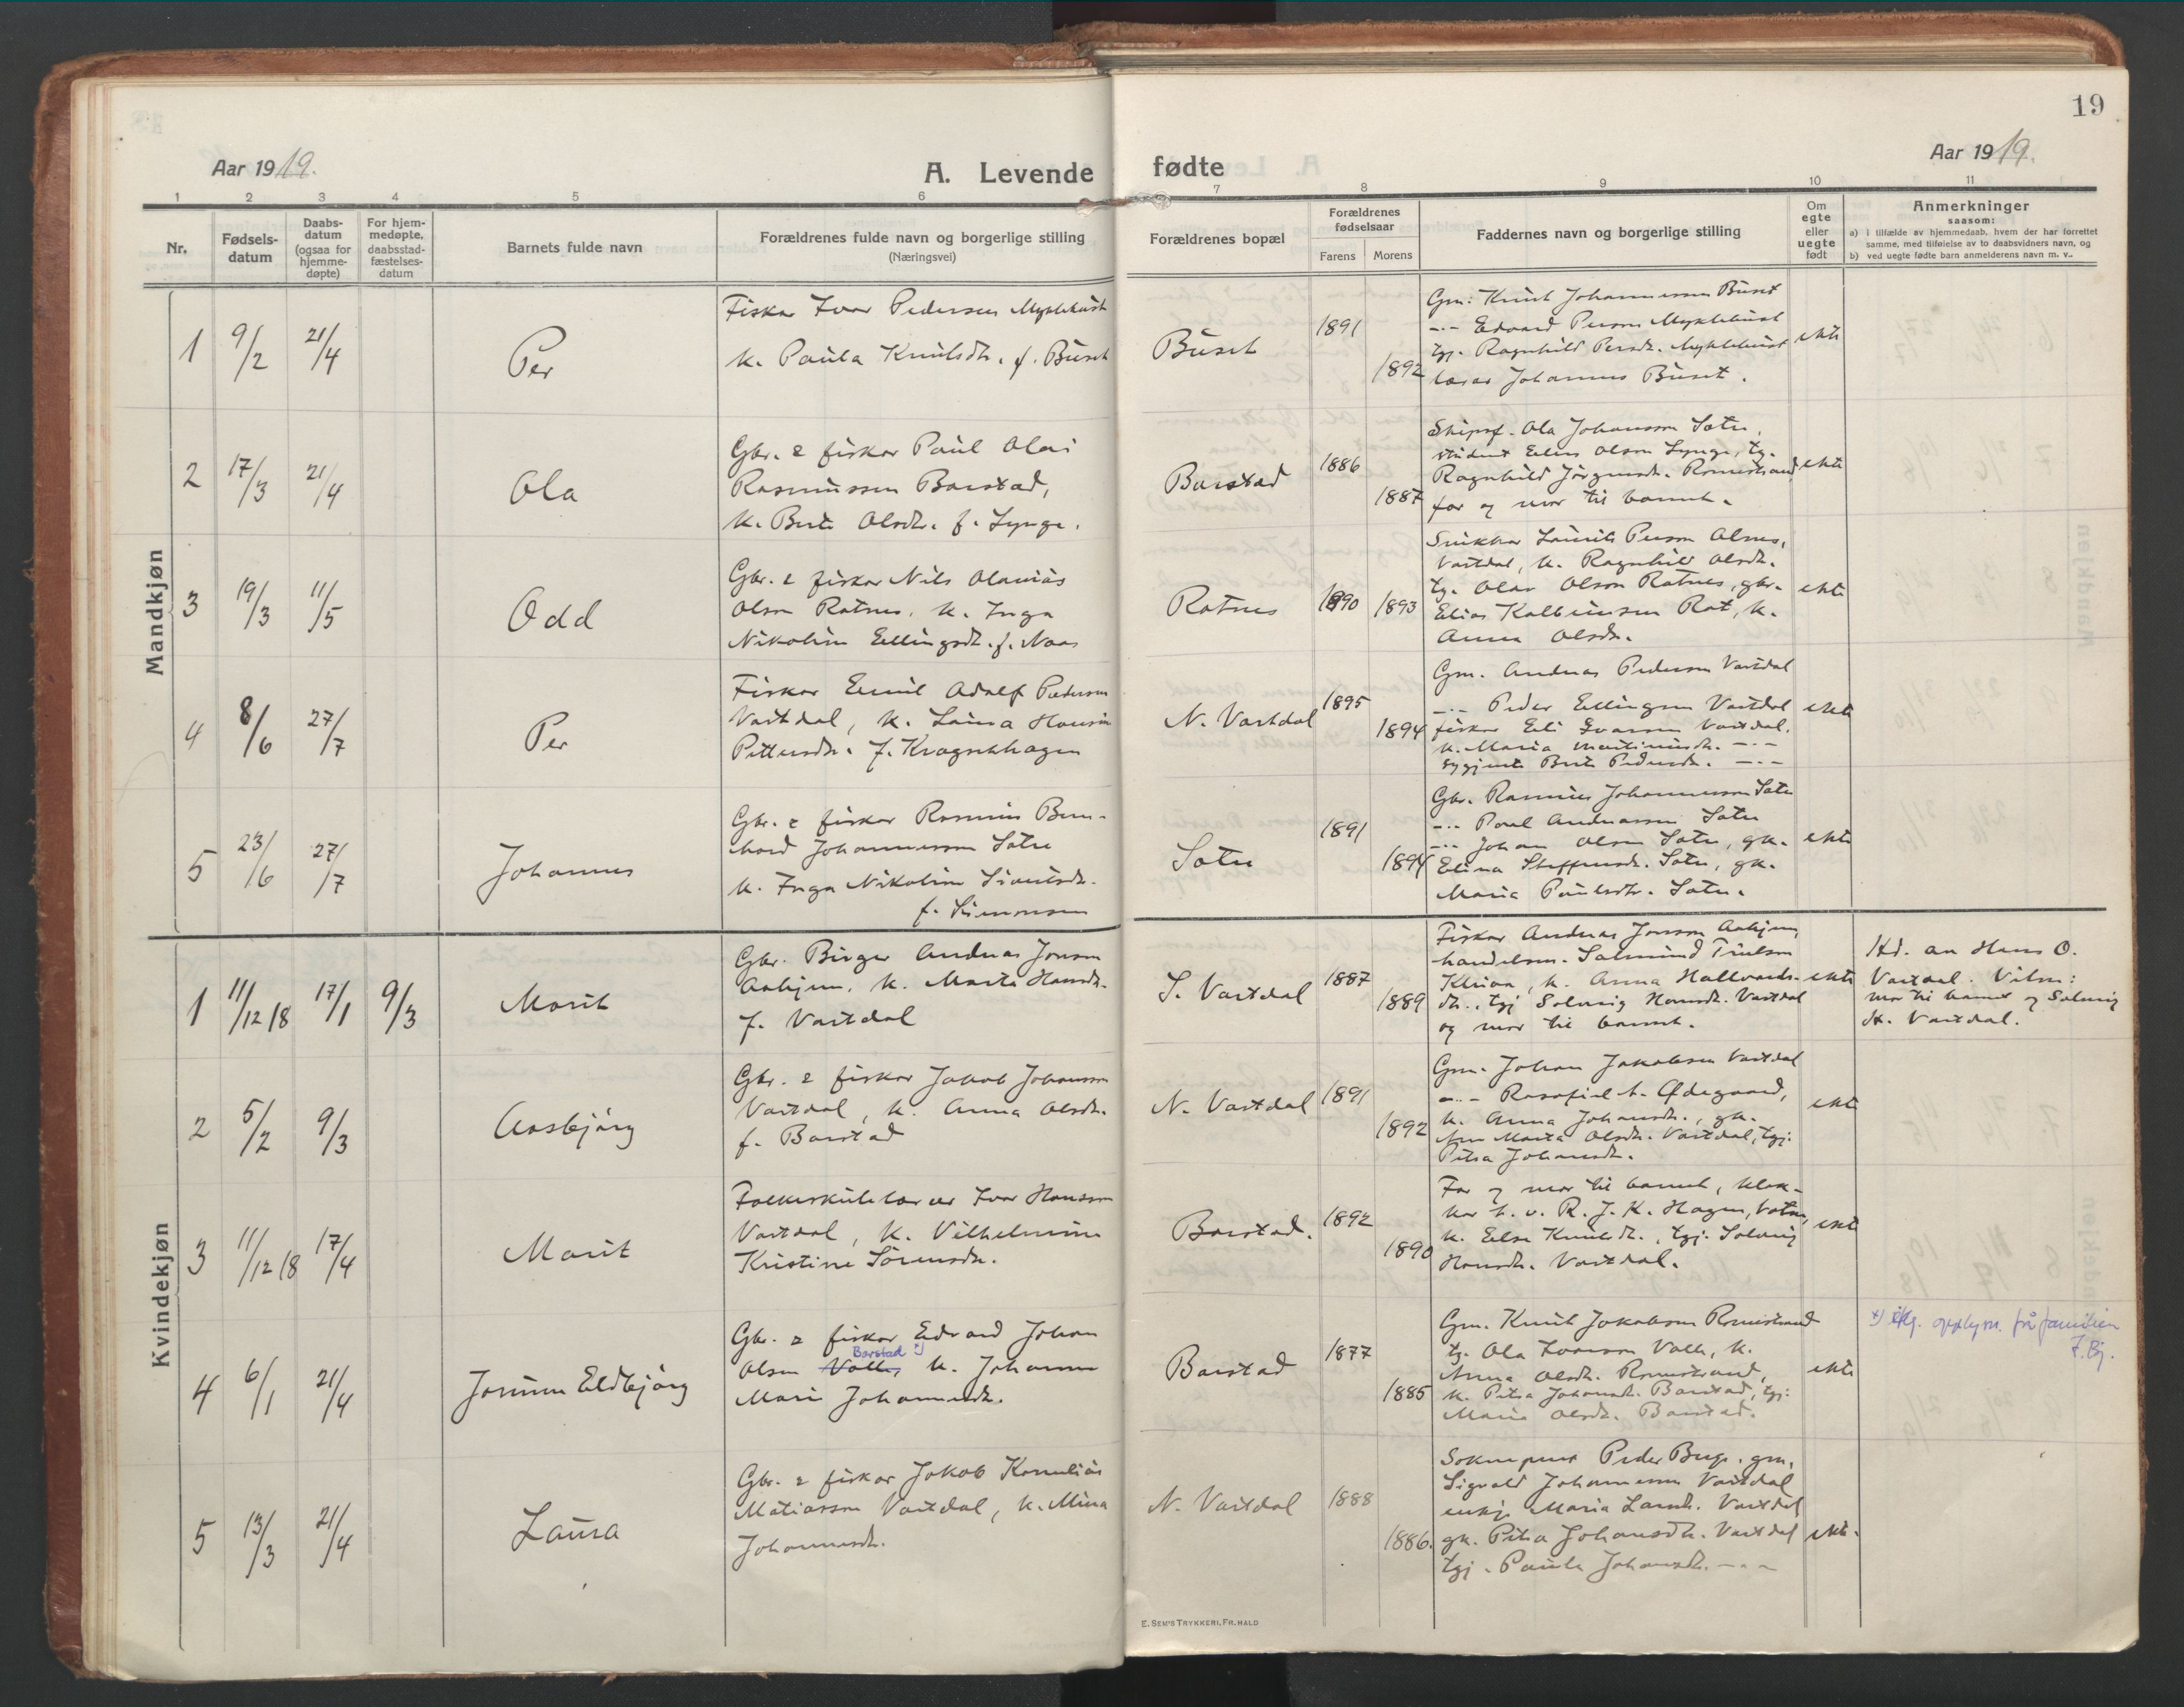 19
Aar 1919.
A. Levende fødte
Aar 1919.
1 2 3 4 5 6 7 8 9 10 11
Nr.
Fødsels-
datum
Daabs-
datum
(ogsaa for
hjemme-
døpte)
For hjem-
medøpte,
daabsstad-
fæstelses-
datum
Barnets fulde navn
Forældrenes fulde navn og borgerlige stilling
(Næringsvei)
Forældrenes bopæl
Forældrenes
fødselsaar
Farens Morens
Faddernes navn og borgerlige stilling
Om
egte
eller
uegte
født
Anmerkninger
saasom:
a) i tilfælde av hjemmedaab, hvem der har forrettet
samme, med tilføielse av to daabsvidners navn, og
b) ved uegte fødte barn anmelderens navn m. v..
Mandkjøn
1 9/2 21/4 Per
Fiskar Ivar Pedersen Myklebust
k. Paula Knutsdtr. f. Buset
Buset 1891 1892
Gm. Knut Johannessen Buset
-·- Edvard Person Myklebust
tgj. Ragnhild Persdtr. Myklebust
Johannes Buset.
ekte
2 17/3 21/4 Ola
Gbr. & fiskar Paul Olai
Rasmussen Barstad,
k. Berte Olsdtr. f. Lynge.
Barstad 1886 1887
Skipsf. Ola Johansson Sætre,
student Elias Olson Lynge, tg.
Ragnhild Jørgensdr. Romestrand,
far og mor til barnet.
ekte
3 19/3 11/5 Odd
Gbr. & fiskar Nils Olanias
Olson Rotnes, k. Inga
Nikoline Ellingsdtr. f. Naas
Rotnes 1890 1893
Snikkar Laurits Person Alnes,
Vartdal, k. Ragnhild Olsdtr.
tg. Olav Olson Rotnes, gbr.
Elias Kolbeinsen Rot, k.
Anna Olsdtr.
ekte
4 8/6 27/7 Per
Fiskar Emil Adolf Pederson
Vartdal, k. Laura Hansine
Pettersdtr. f. Kragsethhagen
N. Vartdal 1895 1894
Gm. Andreas Pederson Vartdal
-·- Peder Ellingsen Vartdal
fiskar Eli Ivarson Vartdal.
k. Maria Martinusdtr. -·-
Berte Pedersdtr. -·-
ekte
5 23/6 27/7 Johannes
Gbr. & fiskar Rasmus Bern-
hard Johannesson Sætre
k. Inga Nikoline Sivertsdtr.
f. Simonsen
Sætre 1891 1894
Gbr. Rasmus Johannesson Sætre
-·- Paul Andreassen Sætre
-·- Johan Olson Sætre, gk.
Elina Steffensdtr. Sætre, gk.
Maria Paulsdtr. Sætre.
ekte
Kvindekjøn
1 11/12 18 17/1 9/3 Marit
Gbr. Birger Andreas Jonson
Aarhjem, k. Marta Hansdtr.
f. Vartdal
S. Vartdal 1887 1889
Fiskar Andreas Jonson Aarhjem,
handelsm. Salmund Trulson
k. Anna Hallvards-
dtr., tgj Solveig Hansdtr. Vartdal
og mor til barnet.
ekte
Hd. av Hans O.
Vartdal. Vitn:
mor til barnet og Solveig
H. Vartdal.
2 5/2 9/3 Aasbjörg
Gbr. & fiskar Jakob Johansson
Vartdal, k. Anna Olsdtr.
f. Barstad
N. Vartdal 1891 1892
Gm. Johan Jakobsen Vartdal
-·- Ødegaard,
k. Anna Johansdtr., gk.
Marta Olsdtr. Vartdal, tgj.
Petra Johansdtr.
ekte
3 11/12 18 17/4 Marit
Folkeskulelærar Ivar Hansson
Vartdal, k. Vilhelmine
Kristine Sørensdtr.
Barstad. 1892 1890
Far og mor til barnet, klok-
kar R. J. K. Hagen,
k. Else Knutsdtr., tgj. Solveig
Hansdtr. Vartdal.
ekte
4 6/1 21/4 Jorunn Eldbjörg
Gbr. & fiskar Edvard Johan
Barstad x)
Olson Valle, k. Johanne
Marie Johannesdtr.
Barstad 1877 1885
Gm. Knut Jakobson Romestrand
tg. Ola Ivarson Valle, k.
Anna Olsdtr. Romestrand,
k. Petra Johansdtr. Barstad, tgj.
Marie Olsdtr. Barstad.
ekte
x) flg. opplysn. frå familien
F. Bj.
5 13/3 21/4 Laura
Gbr. & fiskar Jakob Kornelius
Matiasson Vartdal, k. Mina
Johannesdtr.
N. Vartdal 1888 1886.
Sokneprest Peder Buge, gm.
Sigvald Johannesen Vartdal
enkje Maria Larsdtr. Vartdal
gk. Petra Johansdtr. Vartdal
tgj. Paula Johansdtr. -·-
ekte.
E. SEM'S TRYKKERI, FR.HALD